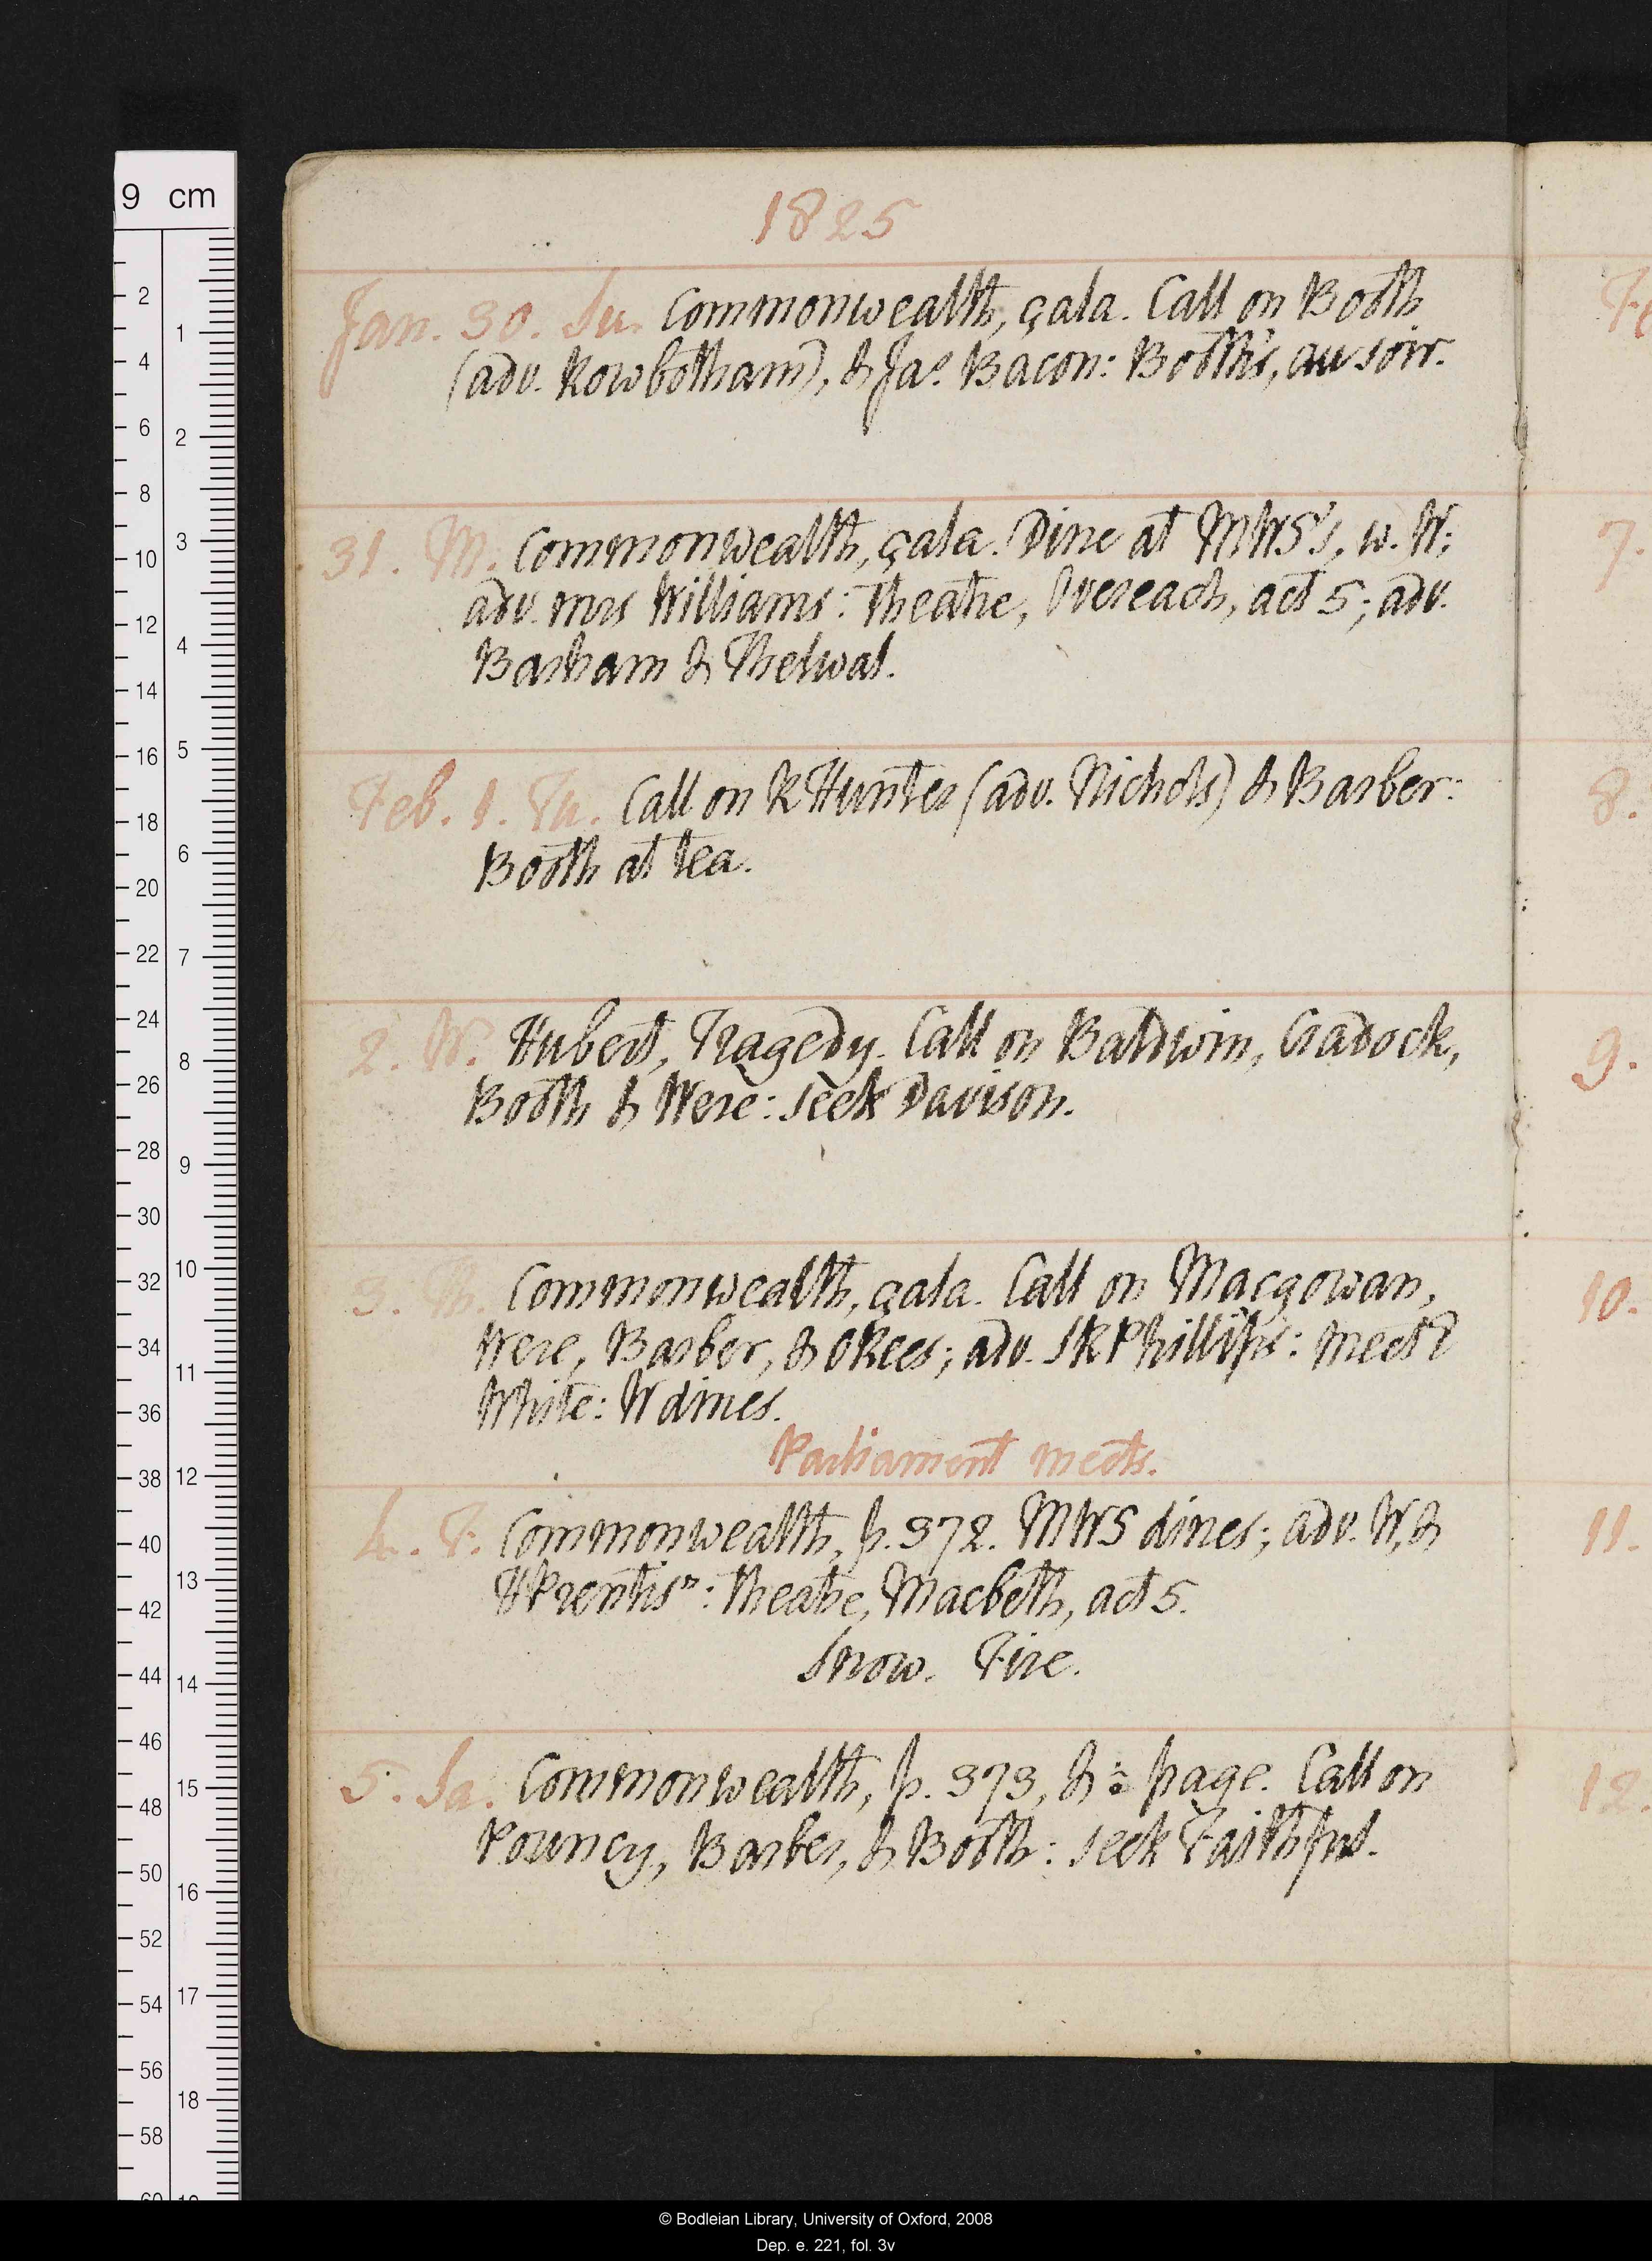 1825
Jan. 30. Su. Commonwealth, çala. Call on Booth
(adv. Rowbotham), & Jas. Bacon: Booth's, au soir.
31. M. Commonwealth, çala. Dine at MWS's, w. W;
adv. mrs Williams: theatre, Overeach, act 5; adv.
Barham & Thelwal.
Feb. 1. Tu. Call on R Hunter (adv. Nichols) & Barber:
Booth at tea.
2. W. Hubert, Tragedy. Call on Baldwin, Cradock,
Booth & Were: seek Davison.
3. Th. Commonwealth, çala. Call on Macgowan,
Were, Barber, & ORees; adv. SR Phillips: meet
White: W dines.
Parliament meets.
4. F. Commonwealth, p. 372. MWS dines; adv. W, &
HPrentis: theatre, Macbeth, act 5.
Snow. Fire.
5. Sa. Commonwealth, p. 373, & page. Call on
Pouncy, Barber, & Booth: seek Faithful.
7.
8.
9.
10.
11.
12.
9 cm
2
4
6
8
10
12
14
16
18
20
22
24
26
28
30
32
34
36
38
40
42
44
46
48
50
52
54
56
58
1
2
3
4
5
6
7
8
9
10
11
12
13
14
15
16
17
18
© Bodleian Library, University of Oxford, 2008
Dep. e. 221, fol. 3v